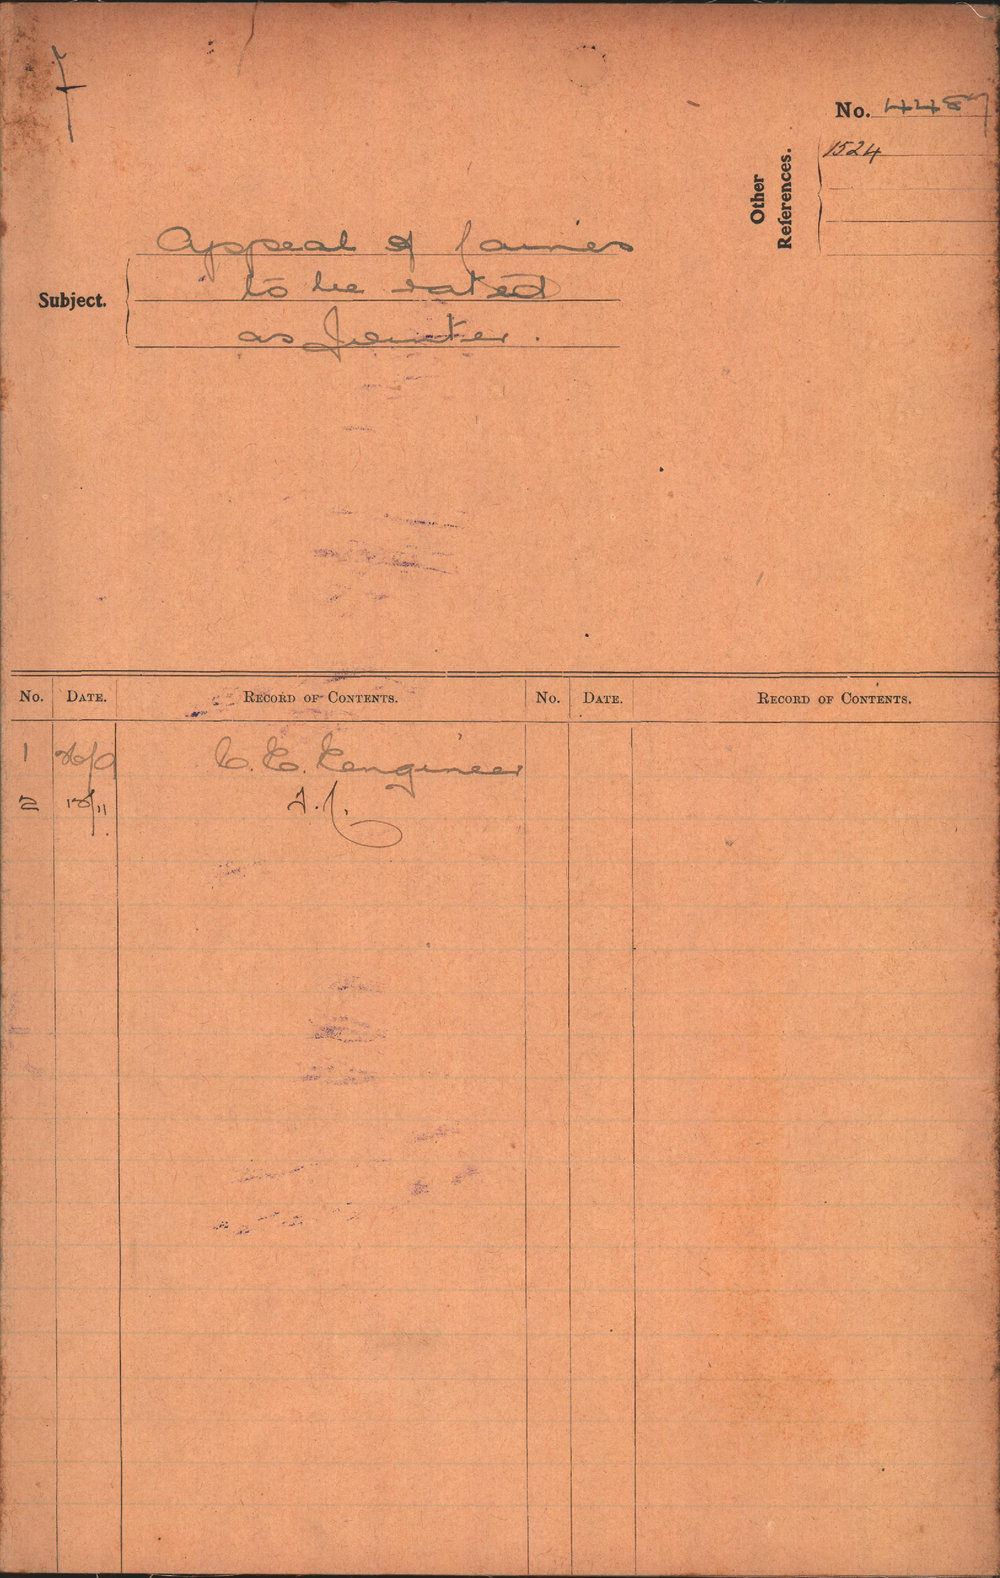 No. 4487
Other References.
1524
Subject.
Appeal of James
to be rated
as Jointer.
No. DATE. RECORD OF CONTENTS. No. DATE. RECORD OF CONTENTS.
1 C. E. Engineer
2 12/11